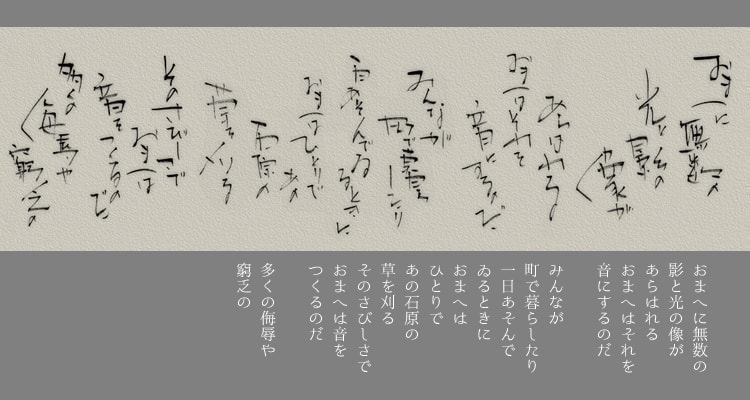 おまへに
無数の
光と影の
像が
あらはれる
おまへはそれを
音にするのだ
みんなが
町で暮らしたり
一日あそんでゐ
るときに
おまへはひとりで
あの
石原の
草を刈る
そのさびしさで
おまへは
音をつくるのだ
多くの
侮辱や
窮乏の
おまへに無数の
影と光の像が
あらはれる
おまへはそれを
音にするのだ
みんなが
町で暮らしたり
一日あそんで
ゐるときに
おまへは
ひとりで
あの石原の
草を刈る
そのさびしさで
おまへは音を
つくるのだ
多くの侮辱や
窮乏の